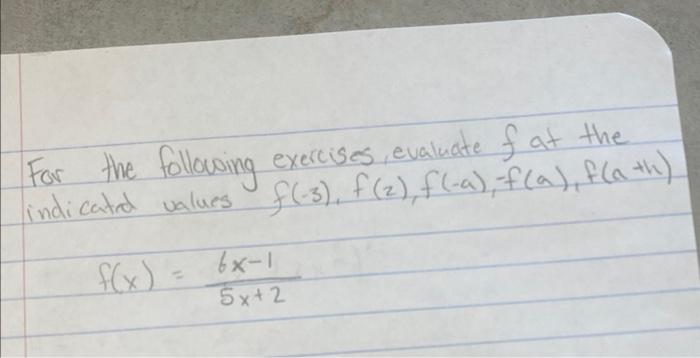 For the following exercises, evaluate f at the
indicated values f(-3), f(2), f(-a), -f(a), f(a+h)
f(x) = 6x-1
5x+2